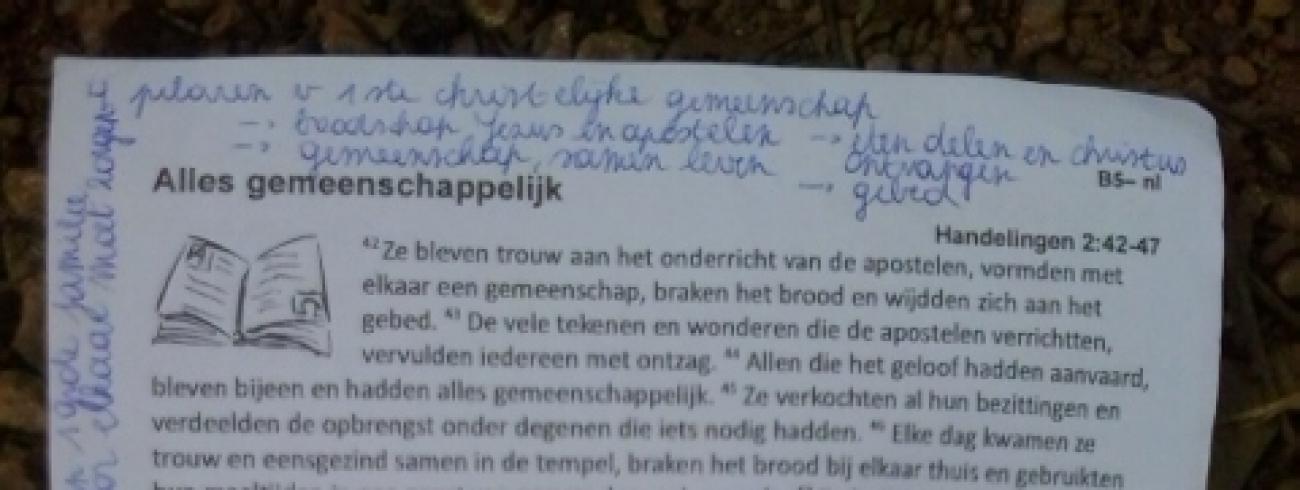 4 pilaren v 1ste christelijke gemeenschap
-> boodschap Jezus en apostelen -> eten delen en christus
-> gemeenschap, samen leven ontvangen
-> gebed
Alles gemeenschappelijk
BS– nl
Handelingen 2:42-47
42 Ze bleven trouw aan het onderricht van de apostelen, vormden met
elkaar een gemeenschap, braken het brood en wijdden zich aan het
gebed. 43 De vele tekenen en wonderen die de apostelen verrichtten,
vervulden iedereen met ontzag. 44 Allen die het geloof hadden aanvaard,
bleven bijeen en hadden alles gemeenschappelijk. 45 Ze verkochten al hun bezittingen en
verdeelden de opbrengst onder degenen die iets nodig hadden. 46 Elke dag kwamen ze
trouw en eensgezind samen in de tempel, braken het brood bij elkaar thuis en gebruikten
familie
elkaar moet zorgen